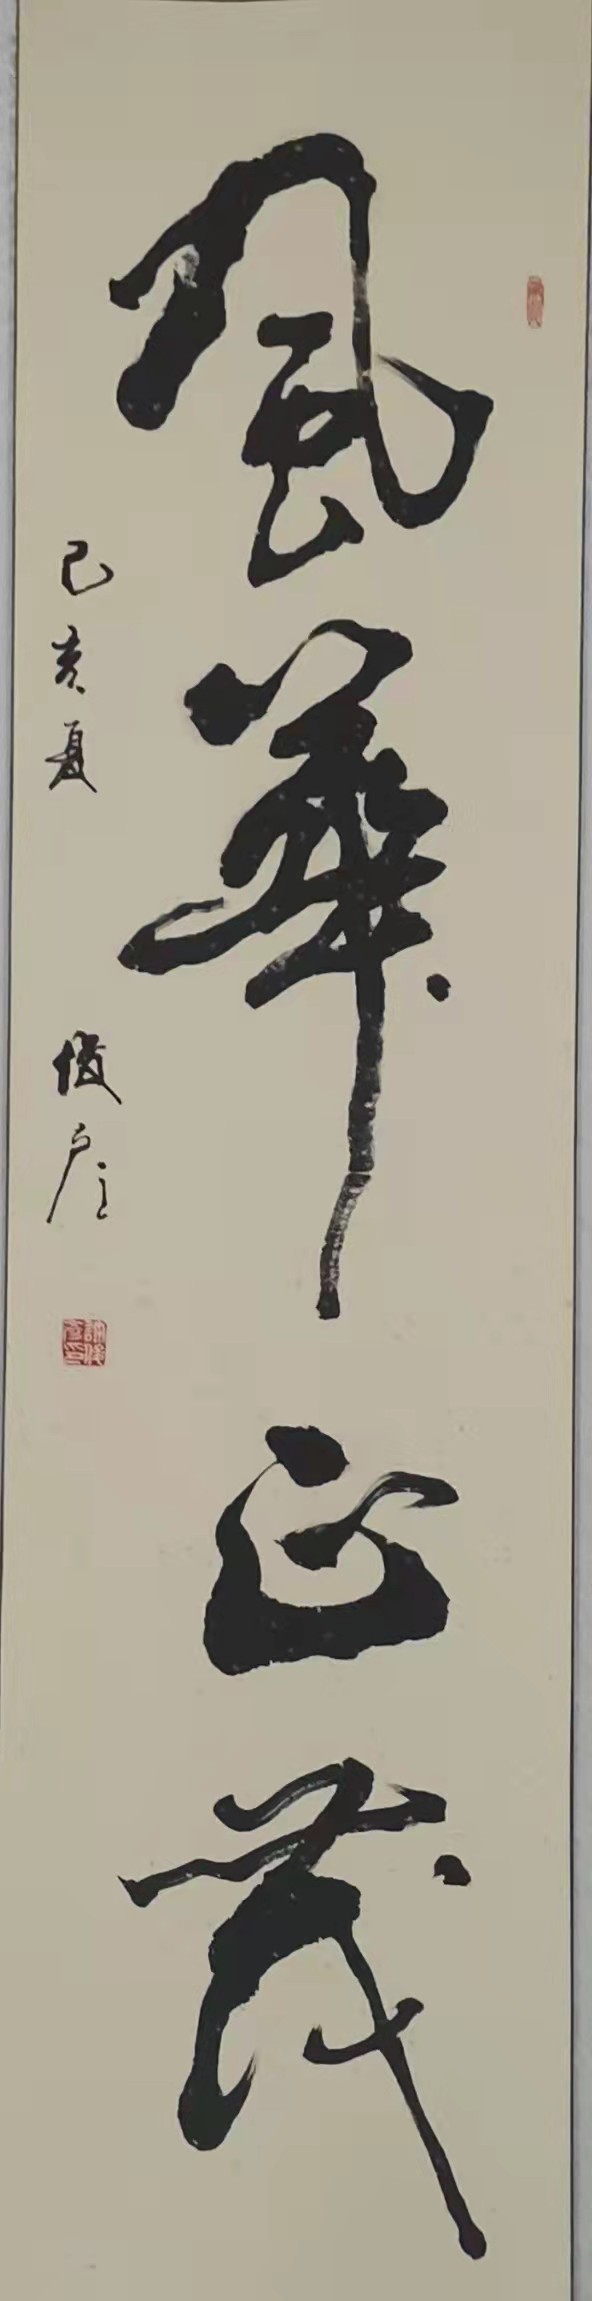 風華正茂
己亥夏
俊彦